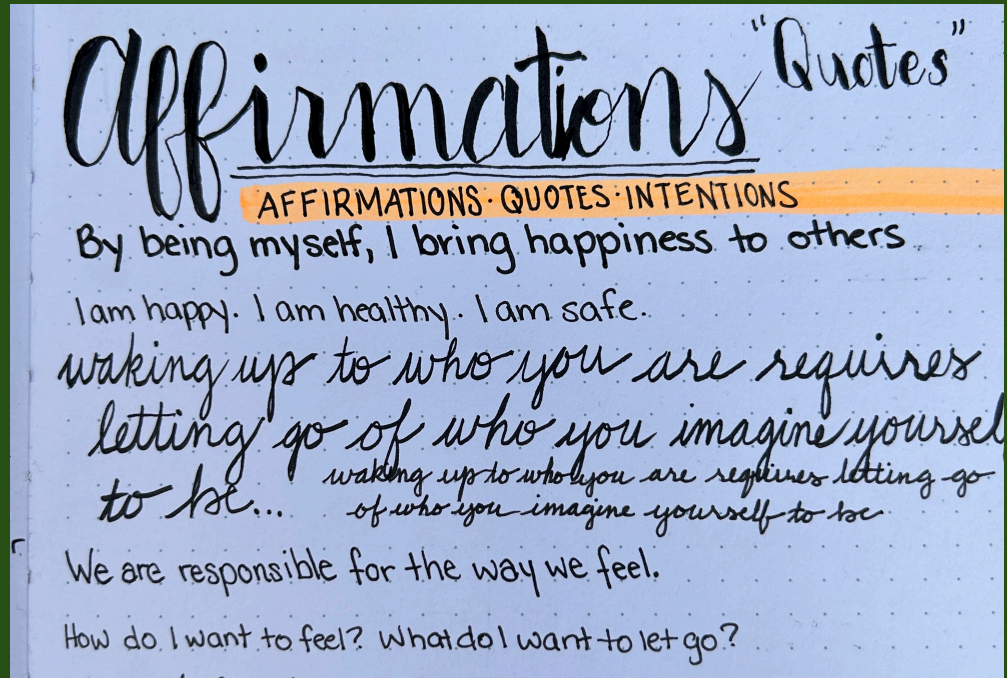 Affirmations "Quotes"
AFFIRMATIONS · QUOTES · INTENTIONS
By being myself, I bring happiness to others
I am happy. I am healthy. I am safe.
waking up to who you are requires
letting go of who you imagine yoursel
to be...
waking up to who you are requires letting go
of who you imagine yourself to be
We are responsible for the way we feel.
How do I want to feel? What do I want to let go?